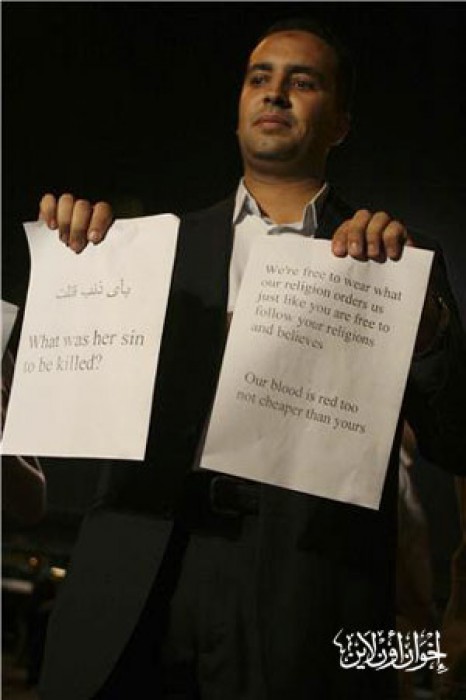 بأى ذنب قتلت
What was her sin
to be killed?
We're free to wear what
our religion orders us
just like you are free to
follow your religions
and believes
Our blood is red too
not cheaper than yours
إخوان أون لاين